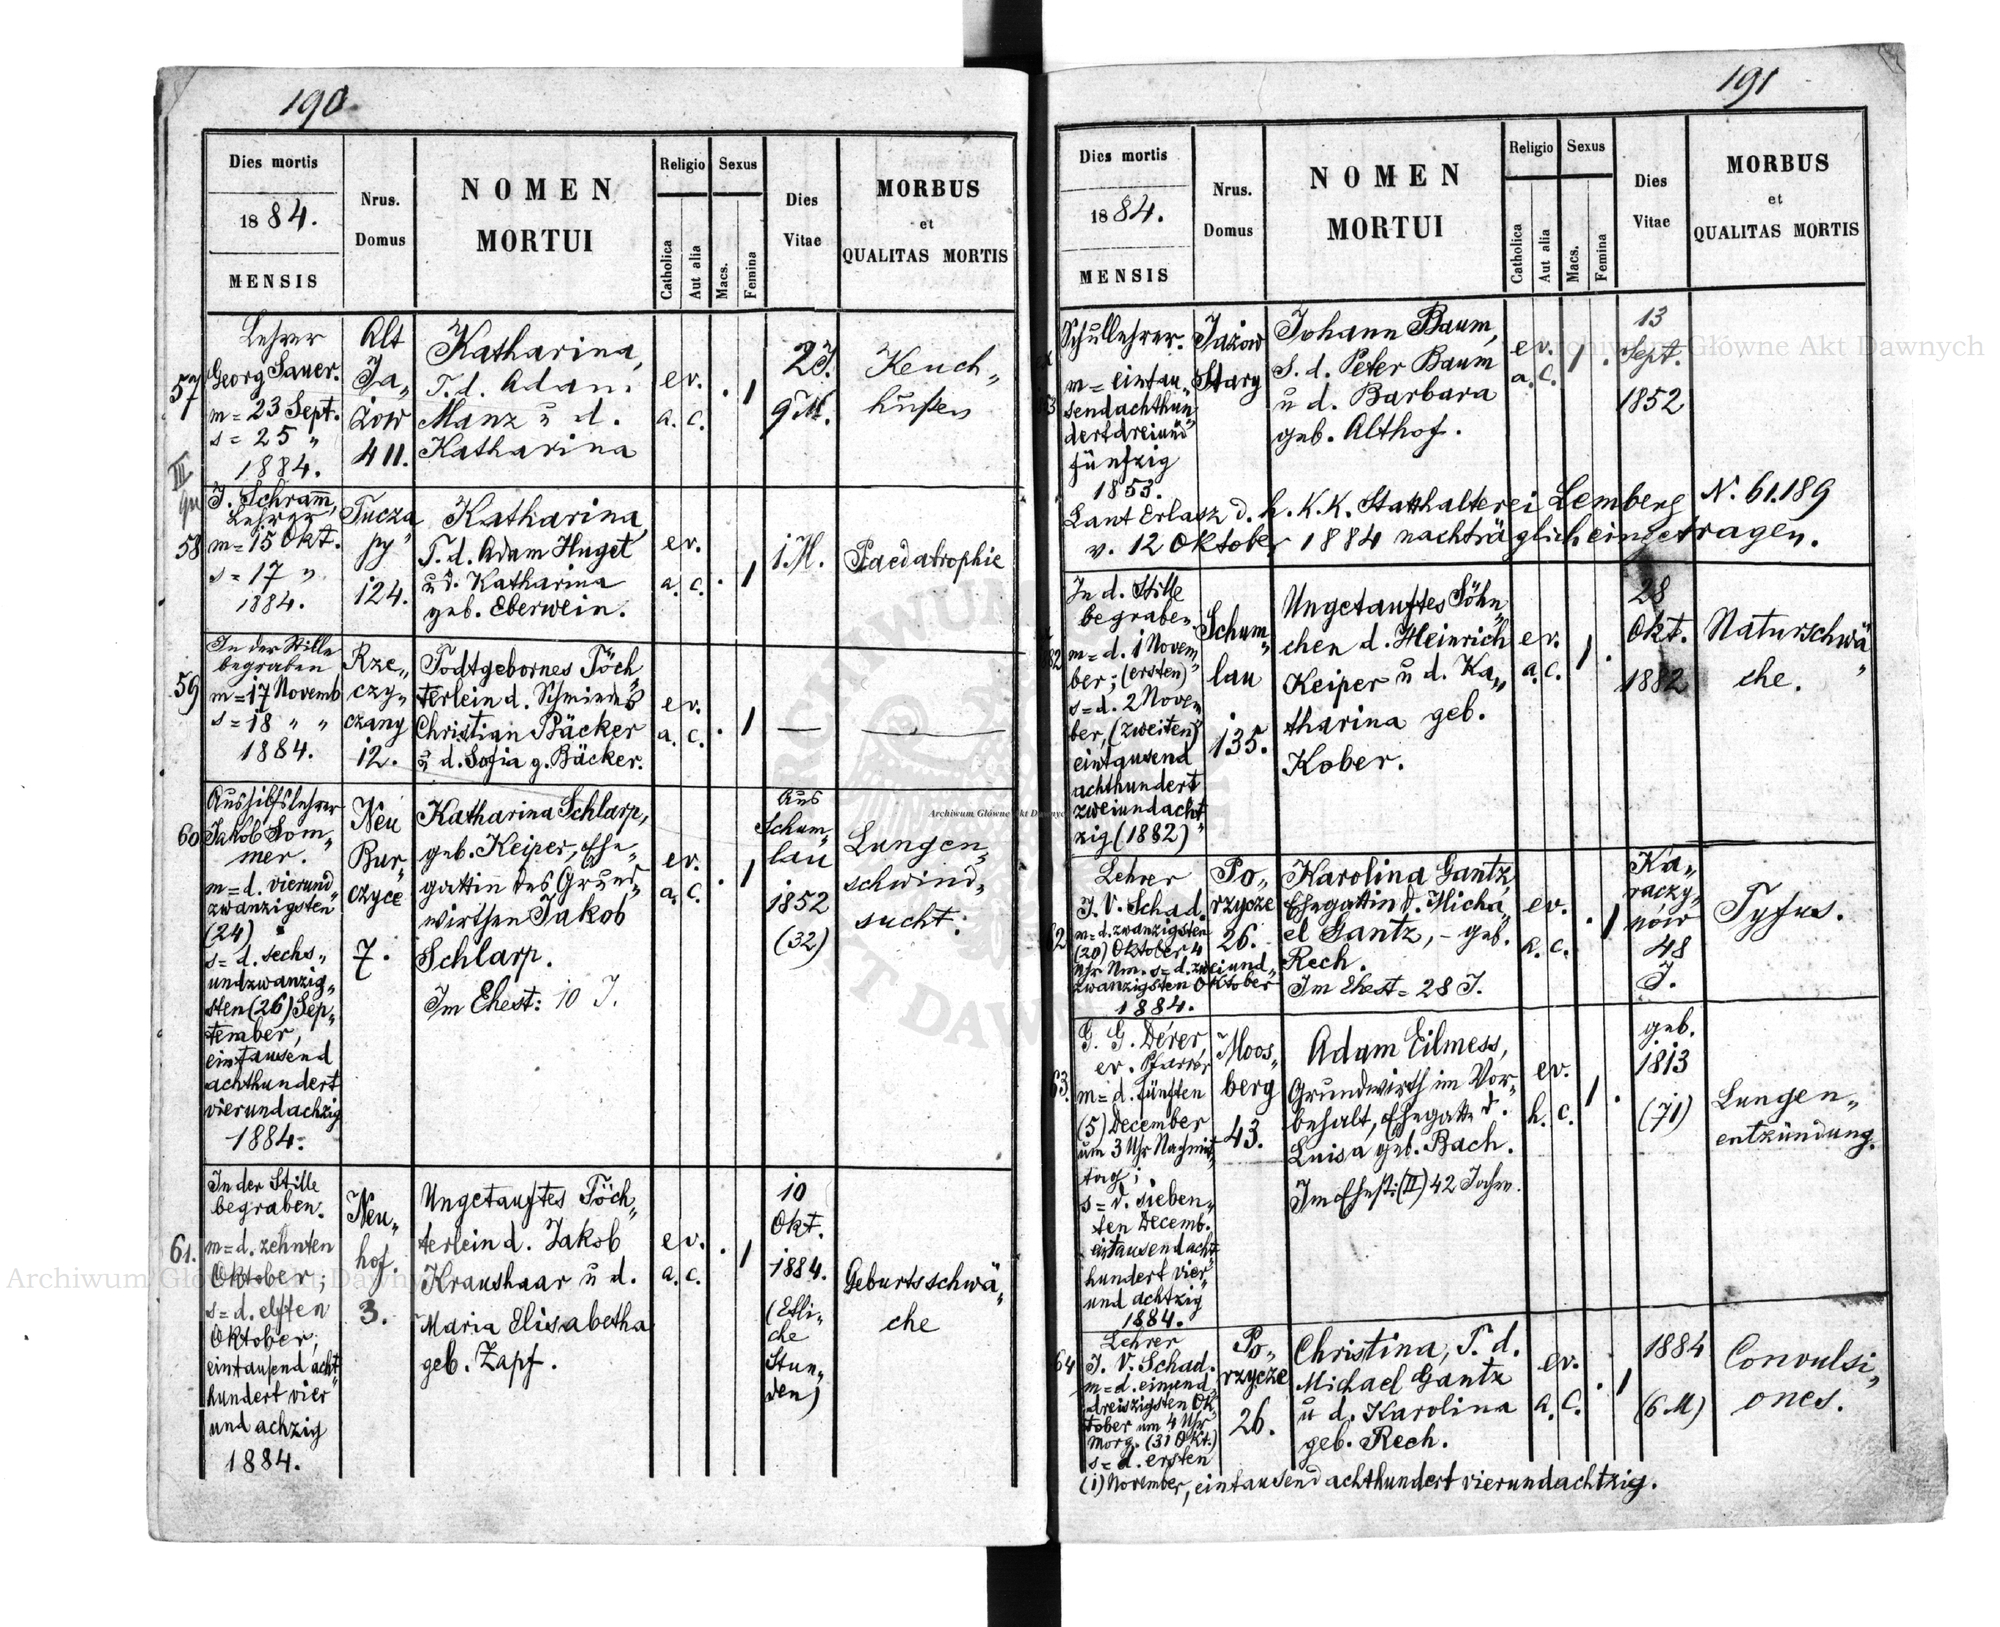 190
Dies mortis
1884.
MENSIS
Nrus.
Domus
NOMEN
MORTUI
Religio
Catholica
Aut alia
Sexus
Macs.
Femina
Dies
Vitae
MORBUS
et
QUALITAS MORTIS
57
Lehrer
Georg Sauer.
m = 23 Sept.
s = 25 "
1884.
Alt
Ja„
żow
411.
Katharina,
T. d. Adam
Manz u d.
Katharina
ev.
a. c.
. 1
2 J.
9 M.
Keuch„
husten
III
58
J. Schram̄,
Lehrer
m = 15 Okt.
s = 17 "
1884.
Tucza
py
124.
Katharina,
T. d. Adam Huget
u d. Katharina
geb. Eberwein.
ev.
a. c.
. 1
1 M.
Paedatrophie
59
In der Stille
begraben
m = 17 Novemb
s = 18 " "
1884.
Rze„
czy„
czany
12.
Todtgebornes Töch„
terlein d. Schmiedes
Christian Bäcker
u d. Sofia g. Bäcker.
ev.
a. c.
. 1
—
—
60
Aushilfslehrer
Jakob Som„
mer.
m = d. vierund„
zwanzigsten
(24)
s = d. sechs„
undzwanzig„
sten (26) Sep„
tember,
eintausend
achthundert
vierundachzig
1884.
Neu
Bur„
czyce
7.
Katharina Schlarp,
geb. Keiper, Ehe„
gattin des Grund„
wirthen Jakob
Schlarp.
Im Ehest: 10 J.
ev.
a. c.
. 1
Aus
Schum„
lau
1852
(32)
Lungen„
schwind„
sucht.
61.
In der Stille
begraben.
m = d. zehnten
Oktober;
s = d. elften
Oktober,
eintausend acht„
hundert vier
und achzig
1884.
Neu„
hof.
3.
Ungetauftes Töch„
terlein d. Jakob
Kraushaar u d.
Maria Elisabetha
geb. Zapf.
ev.
a. c.
. 1
10
Okt.
1884.
(Etli„
che
Stun„
den)
Geburtsschwä„
che
191
Dies mortis
1884.
MENSIS
Nrus.
Domus
NOMEN
MORTUI
Religio
Catholica
Aut alia
Sexus
Macs.
Femina
Dies
Vitae
MORBUS
et
QUALITAS MORTIS
Schullehrer.
m = eintau„
sendachthun„
dertdreiund
fünfzig
1853.
Jażow
Stary
Johann Baum,
S. d. Peter Baum
u d. Barbara
geb. Althof.
ev.
a. c.
1 .
13
Sept.
1852
Laut Erlasz d. h. K. K. Statthalterei Lemberg N. 61.189
v. 12 Oktober 1884 nachträglich eingetragen.
In d. Stille
begraben
m = d. 1 Novem„
ber; (ersten)
s = d. 2 Novem
ber, (zweiten)
eintausend
achthundert
zweiundacht„
zig (1882)
Schum„
lau
135.
Ungetauftes Söhn„
chen d. Heinrich
Keiper u d. Ka„
tharina geb.
Kober.
ev.
a. c.
1 .
28
Okt.
1882
Naturschwä„
che.
62
Lehrer
J. V. Schad.
m = d. zwanzigsten
(20) Oktober, 4
Uhr Nm. s = d. zweiund„
zwanzigsten Oktober
1884.
Po„
rzycze
26.
Karolina Gantz,
Ehegattin d. Micha„
el Gantz, – geb.
Rech.
Im Ehest = 28 J.
ev.
a. c.
. 1
Ka„
raczy„
nów
48
J.
Tyfus.
63.
G. G. Dérer,
ev. Pfarrer
m = d. fünften
(5) December
um 3 Uhr Nachmit„
tag;
s = d. sieben„
ten Decemb.
eintausend acht„
hundert vier„
und achtzig
1884.
Moos„
berg
43.
Adam Eilmess,
Grundwirth im Vor„
behalt, Ehegatte d.
Luisa geb. Bach.
Im Ehest: (II) 42 Jahre.
ev.
h. c.
1 .
geb.
1813
(71)
Lungen„
entzündung.
64
Lehrer
J. V. Schad.
m = d. einund„
dreiszigsten Ok„
tober um 4 Uhr
Morg. (31 Okt.)
s = d. ersten
Po„
rzycze
26.
Christina, T. d.
Michael Gantz
u d. Karolina
geb. Rech.
ev.
a. c.
. 1
1884
(6 M)
Convulsi„
ones.
(1) November, eintausend achthundert vierundachtzig.
Archiwum Główne Akt Dawnych
Archiwum Główne Akt Dawnych
Archiwum Główne Akt Dawnych